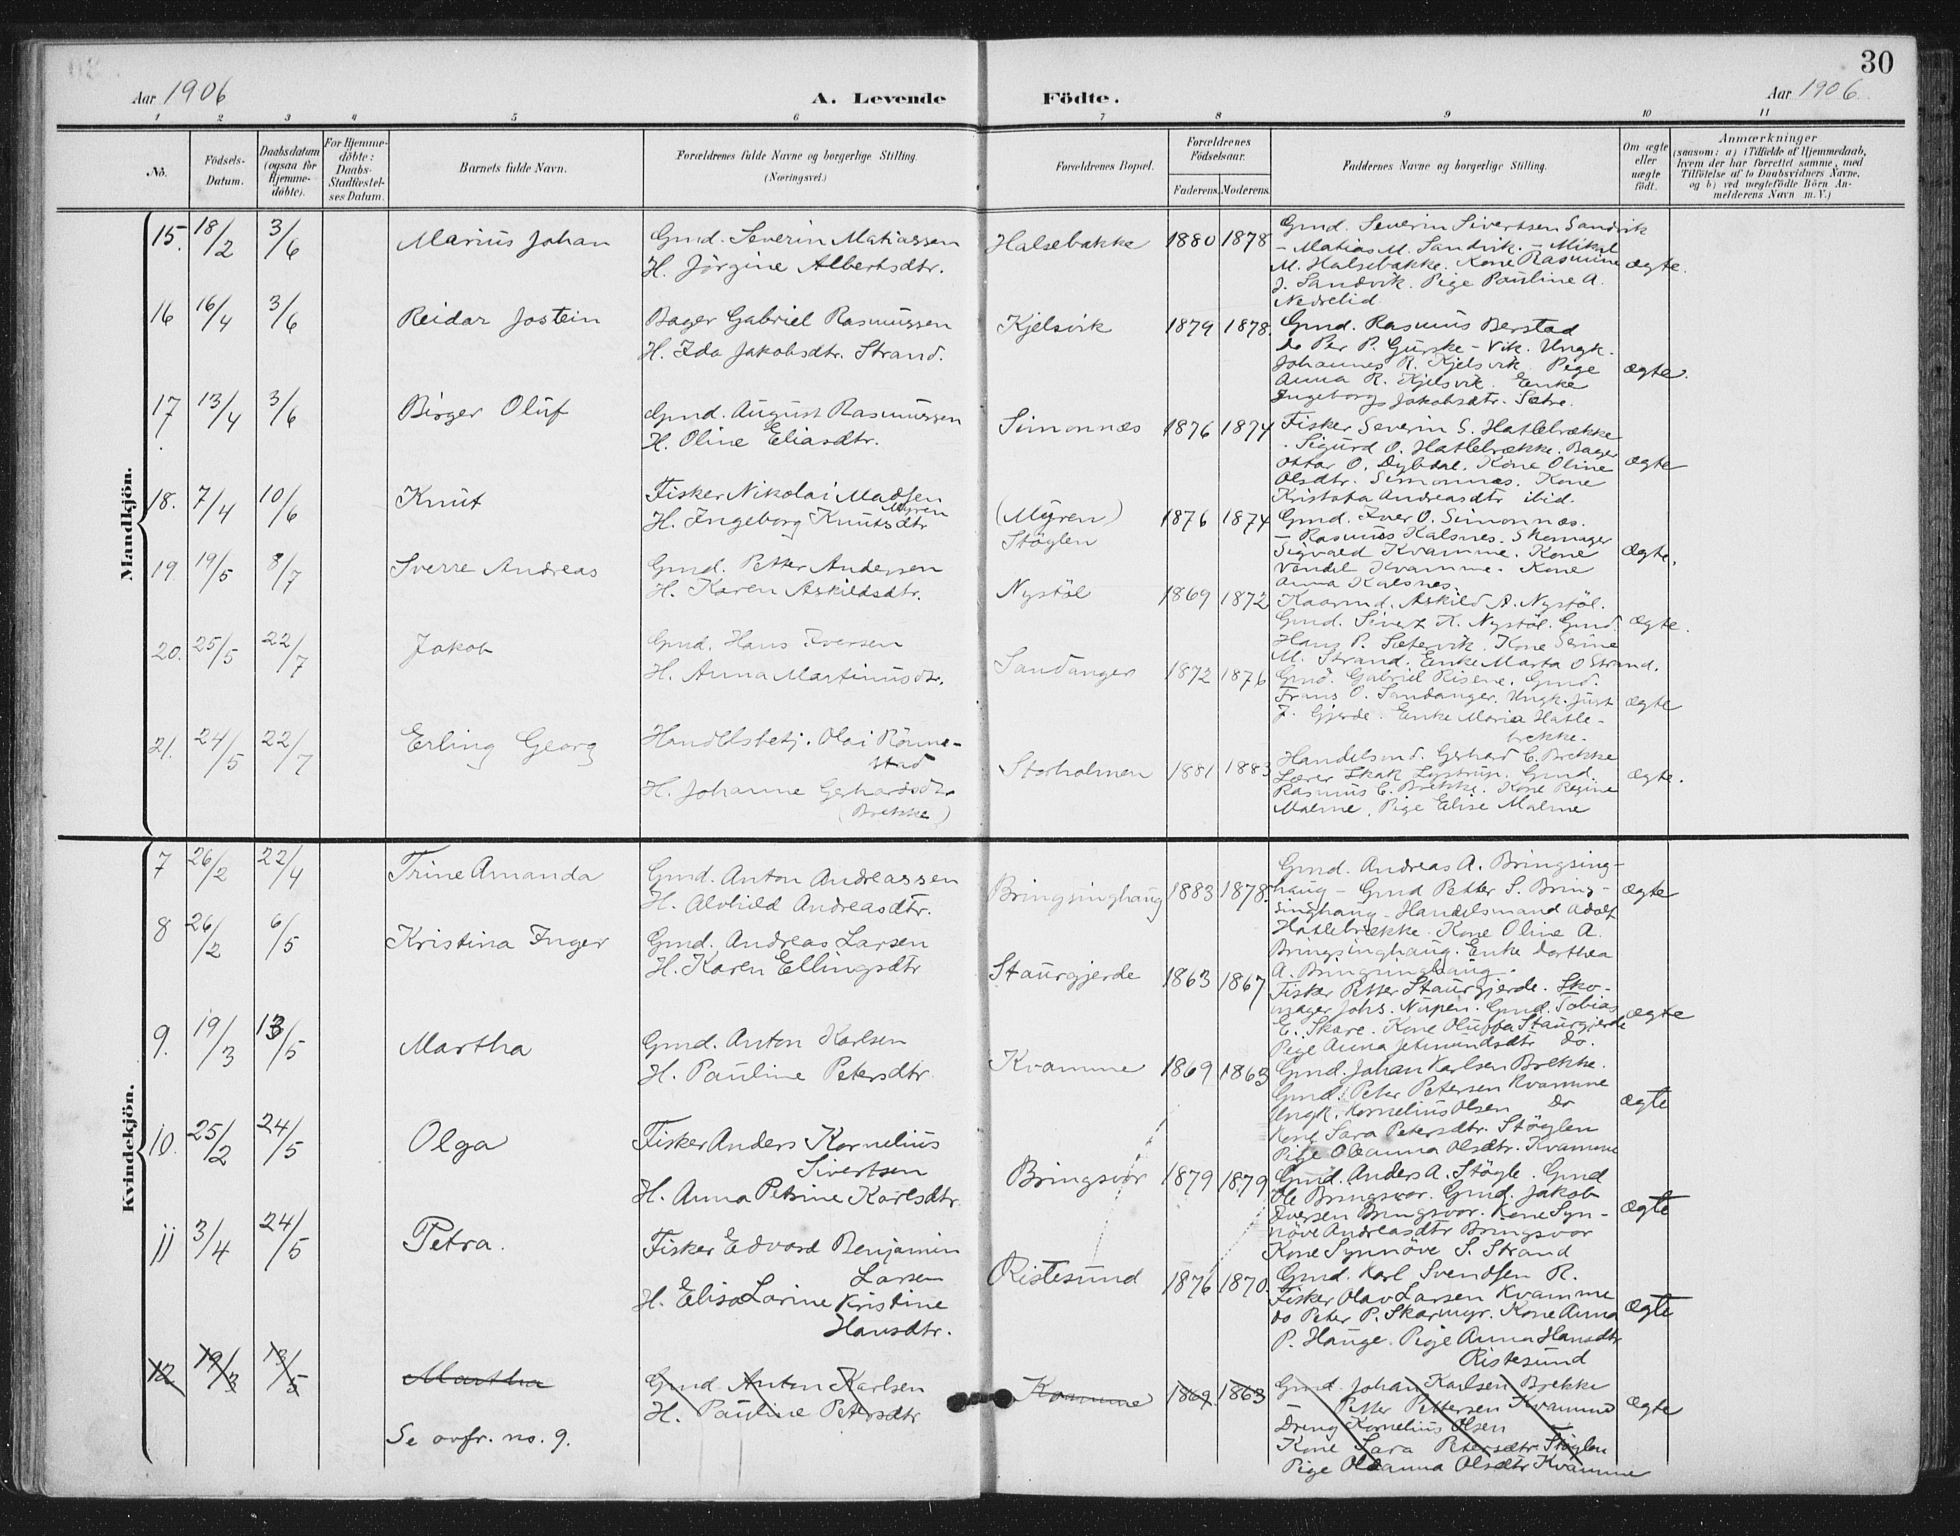 30
Aar 1906
A. Levende
Födte.
Aar 1906.
1 2 3 4 5 6 7 8 9 10 11
No.
Födsels-
Datum.
Daabsdatum
(ogsaa for
Hjemme-
döbte).
For Hjemme-
döbte:
Daabs-
Stadfæstel-
ses Datum.
Barnets fulde Navn.
Forældrenes fulde Navne og borgerlige Stilling.
(Næringsvei.)
Forældrenes Bopæl.
Forældrenes
Födselsaar.
Faderens.
Moderens.
Faddernes Navne og borgerlige Stilling.
Om ægte
eller
uægte
födt.
Anmærkninger
(saasom: a) i Tilfælde af Hjemmedaab,
hvem der har forrettet samme, med
Tilföielse af to Daabsvidners Navne,
og b) ved uægtefödte Börn An-
melderens Navn m. V.)
Mandkjön.
15. 18/2 3/6 Marius Johan
Gmd. Severin Matiassen
H. Jörgine Albertsdtr.
Halsebakke 1880 1878
Gmd. Severin Sivertsen Sandvik
- Matias M. Sandvik. - Mikal
M. Halsebakke. Kone Rasmine
J. Sandvik. Pige Pauline A.
Nedrelid
ægte.
16 16/4 3/6 Reidar Jostein
Bager Gabriel Rasmussen
H. Ida Jakobsdtr. Strand.
Kjelsvik 1879 1878.
Gmd. Rasmus Berstad
do Per P. Gurske-Vik. Ungk.
Johannes R. Kjelsvik. Pige
Anna R. Kjelsvik. Enke
Ingeborg Jakobsdtr. Sætre.
ægte.
17. 13/4 3/6 Birger Oluf
Gmd. August Rasmussen
H. Oline Eliasdtr.
Simonnæs 1876 1874
Fisker Severin S. Hatlebrække
- Sigurd O. Hatlebrække. Bager
Ottar O. Dybdal. Kone Oline
Olsdtr. Simonnæs. Kone
Kristofa Andreasdtr ibid.
ægte
18. 7/4 10/6 Knut
Fisker Nikolai Madsen
Myren
H. Ingeborg Knutsdtr
(Myren)
Stöylen 1876 1874
Gmd. Iver O. Simonnæs.
- Rasmus Kalsnes. Skomager
Sigvald Kvamme. Kone
Vendel Kvamme. Kone
Anna Kalsnes.
Ægte.
19. 19/5 8/7 Sverre Andreas
Gmd. Petter Andersen
H. Karen Askildsdtr.
Nystöl 1869 1872
Kaarmd. Askild A. Nystöl.
Gmd. Sivert K. Nystöl. Gmd.
Hans P. Sætervik. Kone Serine
M. Strand. Enke Marta O Strand.
Ægte.
20. 25/5 22/7 Jakob
Gmd. Hans Iversen
H. Anna Martinusdtr.
Sandanger 1872 1876
Gmd. Gabriel Risene. Gmd.
Frans O. Sandanger. Ungk. Just
J. Gjerde. Enke Maria Hatle-
brekke.
ægte
21. 24/5 22/7 Erling Georg
Handelsbetj. Olai Rönne-
stad
H. Johanne Gerhardsdtr
(Brekke)
Storholmen 1881 1883
Handelsmd. Gerhard C. Brekke
Lærer Skak Lystrup. Gmd.
Rasmus C. Brekke. Kone Regine
Malme. Pige Elise Malme
ægte.
Kvindekjön.
7 26/2 22/4 Trine Amanda
Gmd. Anton Andreassen
H. Alvhild Andreasdtr.
Bringsinghaug 1883 1878.
Gmd. Andreas A. Bringsing-
haug - Gmd Petter S. Bring-
singhaug. Handelsmand Adolf
Hatlebrække. Kone Oline A.
Bringsinghaug. Enke Dorthea
A. Bringsinghaug.
ægte
8 26/2 6/5 Kristina Inger
Gmd. Andreas Larsen
H. Karen Ellingsdtr
Staurgjerde 1863 1867
Fisker Petter Staurgjerde. Sko-
mager Johs. Nupen. Gmd. Tobias
E. Skare. Kone Oluffa Staurgjerde
Pige Anna Jetmundsdtr do.
ægte
9. 19/3 13/5 Martha
Gmd. Anton Karlsen
H. Pauline Petersdtr.
Kvamme 1869 1863
Gmd. Johan Karlsen Brekke.
Gmd. Peter Petersen Kvamme
Ungk. Kornelius Olsen do
Kone Sara Petersdtr. Stöylen
Pige Oleanna Olsdtr. Kvamme
ægte
10. 25/2 24/5 Olga
Fisker Anders Kornelius
Sivertsen
H. Anna Petrine Karlsdtr.
Bringsvor 1879 1879
Gmd. Anders A. Stöyle. Gmd
Ole Bringsvor. Gmd. Jakob
Iversen Bringsvor. Kone Syn-
növe Andreasdtr Bringsvor
Kone Synnöve S. Strand
ægte
11 3/4 24/5 Petra.
Fisker Edvard Benjamin
Larsen
H. Elisa Larine Kristine
Hansdtr.
Ristesund 1876 1870.
Gmd. Karl Svendsen R.
Fisker Olav Larsen Kvamme
do Peter P. Skarmyr. Kone Anna
P. Hauge. Pige Anna Hansdtr
Ristesund
ægte
12 19/3 13/5 Martha
Gmd. Anton Karlsen
H. Pauline Petersdtr
Kvamme 1869. 1863
Gmd. Johan Karlsen Brekke
Petter Pettersen Kvamme
Dreng Kornelius Olsen
Kone Sara Petersdtr. Stöylen
Pige Oleanna Olsdtr Kvamme
ægte
Se ovfr. no. 9.